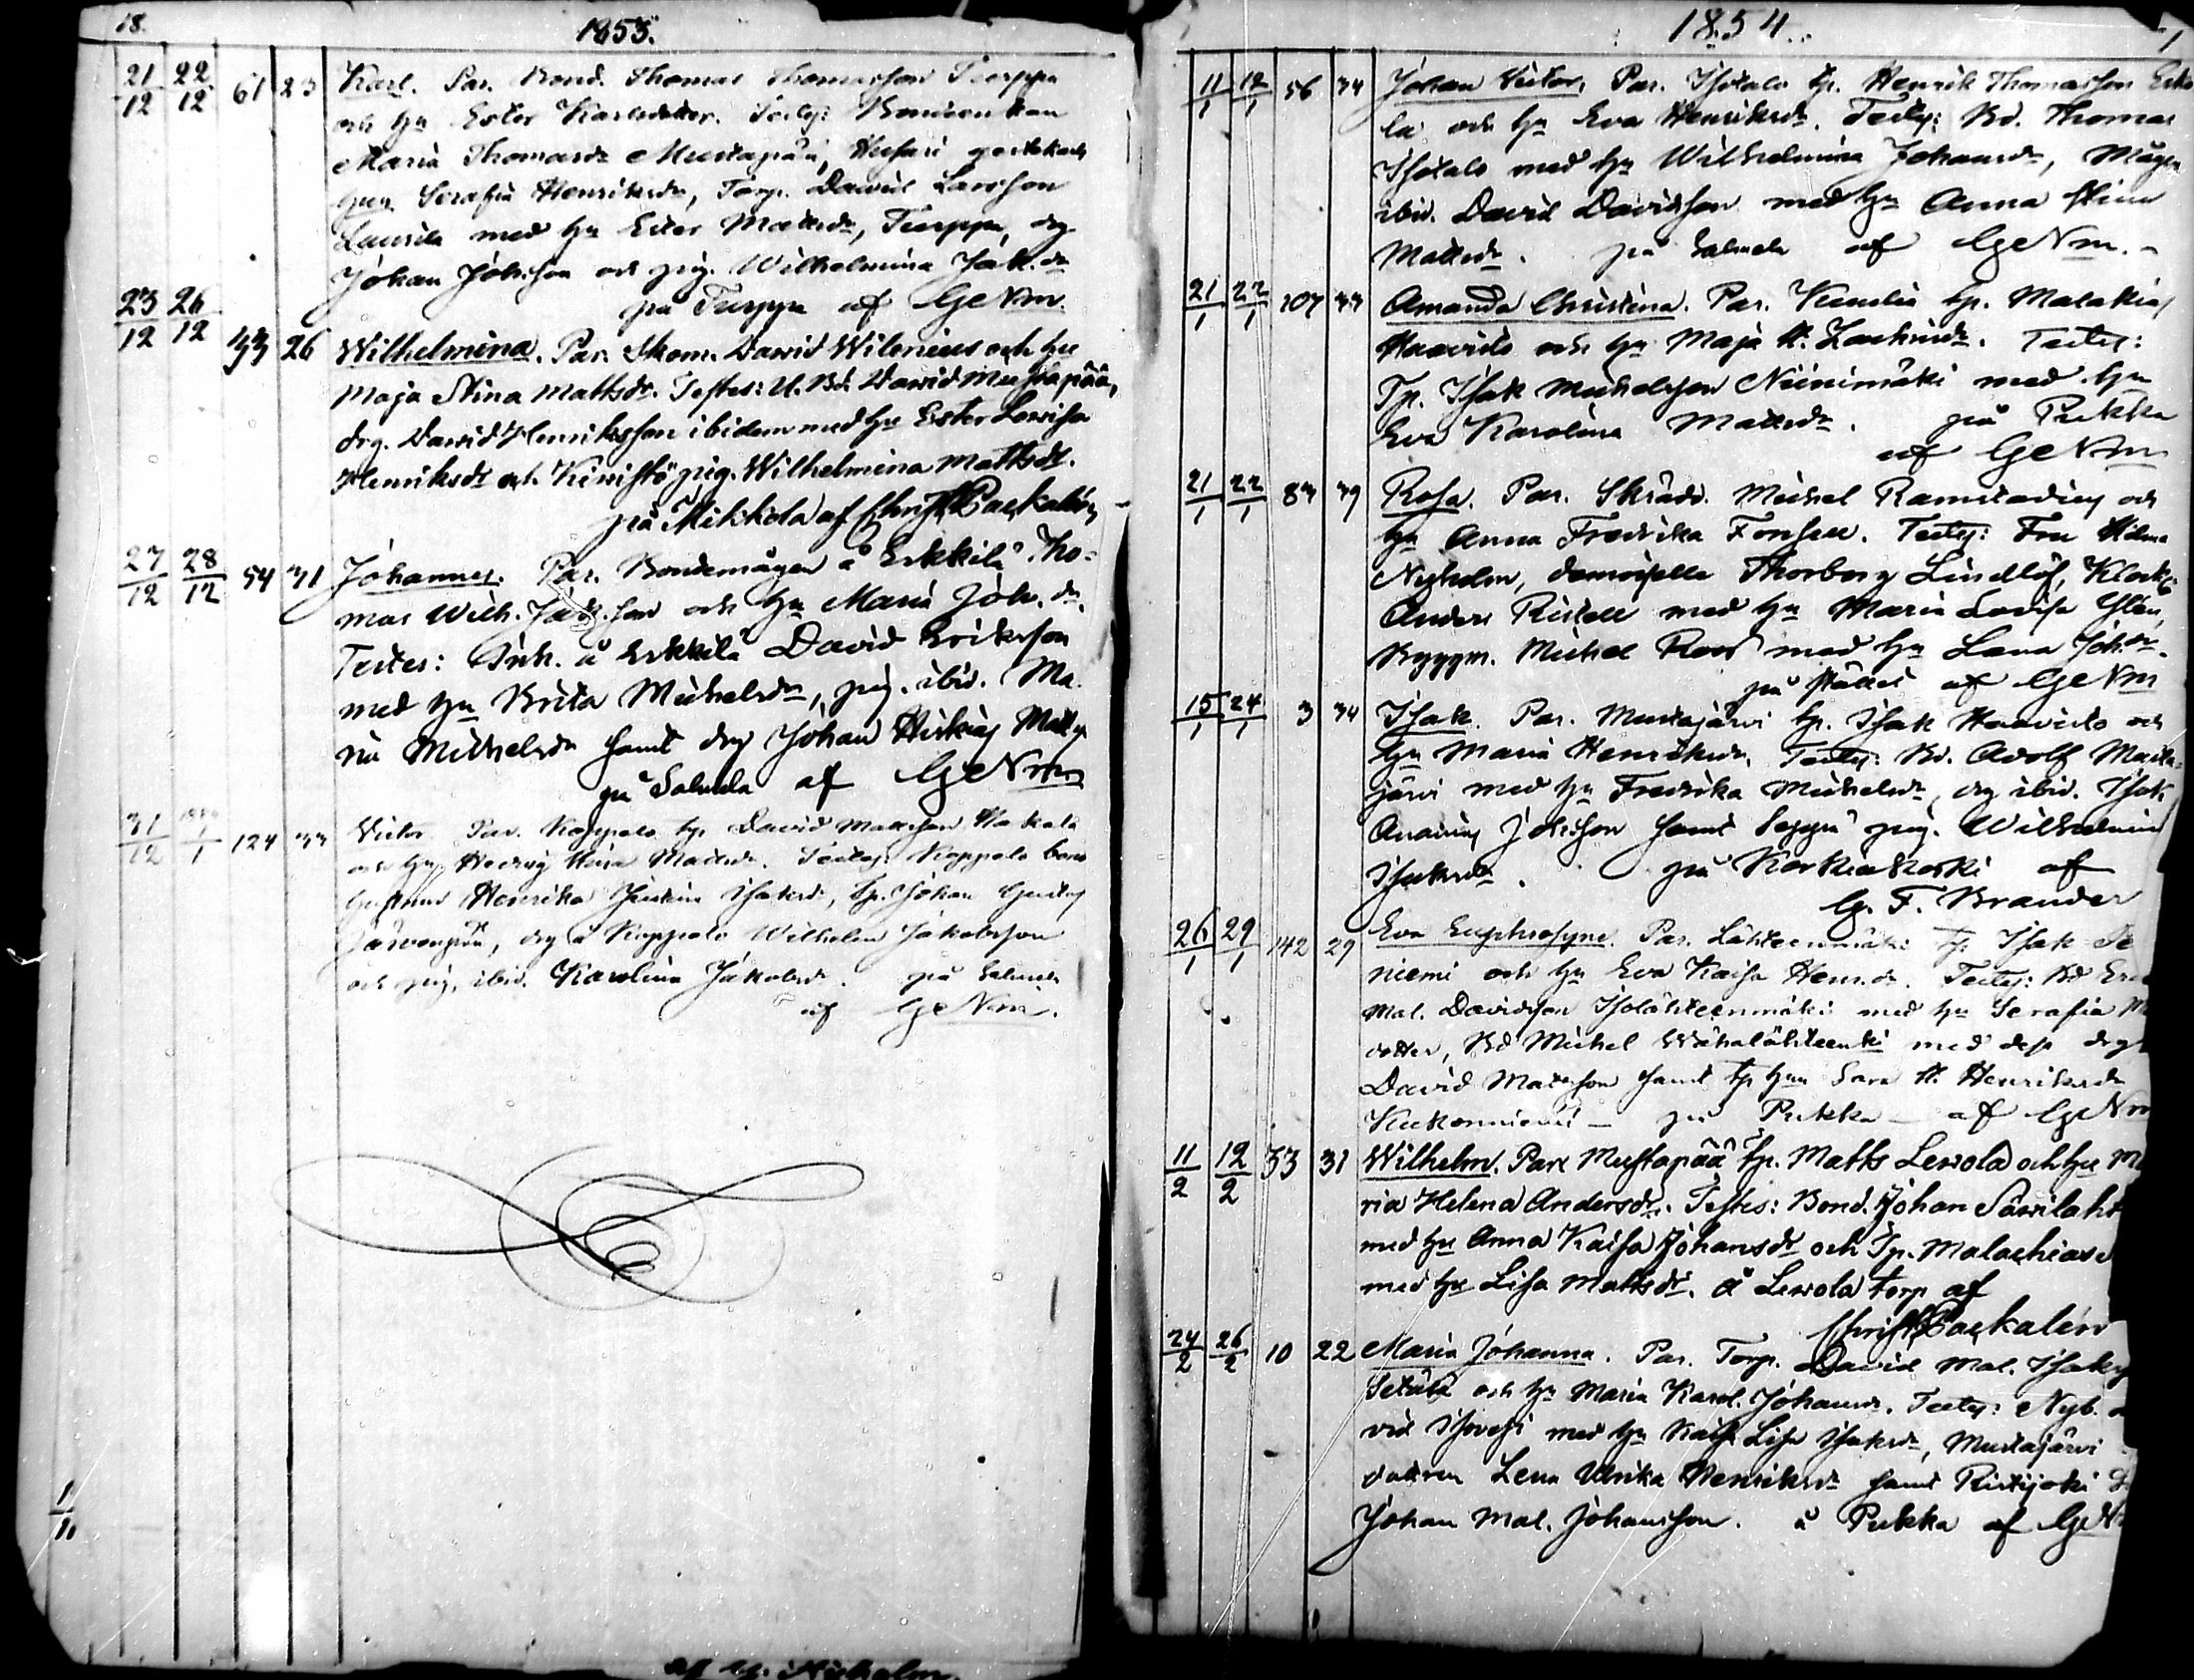 18.
1853.
21/12 22/12 61 23 Karl. Par. Bond. Thomas Thomasson Turppa
och hu Ester Karlsdotter. Testes: Bondeenkan
Maria Thomasdr Mustapää, Husari
Serafia Henriksdr, Torp. David Larsson
Laurila med hu Ester Mattsdr, Turppa, drg
Johan Johsson och pig. Wilhelmina Jak.dr
på Turppa af GeNm.
23/12 26/12 33 26 Wilhelmina. Par. Skom. David Wilenius och hu
Maja Stina Mattsdr. Testes: U. Bd. David Mustapää,
drg. David Henriksson ibidem med hu Ester Lowisa
Henriksdr och Kiwistö pig. Wilhelmina Mattsdr.
på Mikkola af Christ. Paskalén
27/12 28/12 54 31 Johannes. Par. Bondemågen å Erkkilä Tho-
mas Wilh. Jak.son och hu Maria Joh. dr.
Testes: Inh. å Erkkilä David Eriksson
med hu Brita Michelsdr, pig. ibid. Ma-
ria Michelsdr samt drg Johan Matts
på Salmela af GeNm
31/12 1854 1/1 124 33 Victor. Par. Koppelo tp. David Mattsson Hakala
och hu Hedvig Stina Mattsdr. Testes: Koppelo bond
hustrun Henrika Justina Isaksdr, tp. Johan Gustaf
Järvenpää, drg å Koppelo Wilhelm Jakobsson
och pig. ibid. Karolina Jakobsdr. på Salmela
af GeNm.
1854.
11/1 12/1 56 34 Johan Victor, Par. Isotalo tp. Henrik Thomasson Erkki
lä och hu Eva Henriksdr. Testes: Bd. Thomas
Isotalo med hu Wilhelmina Johansdr, Mågen
ibid. David Davidsson med hu Anna Stina
Mattsdr. på Salmela af GeNm.
21/1 22/1 107 33 Amanda Christina. Par. tp. Malakias
Haavisto och hu Maja St. Zachrisdr. Testes:
Tp. Isak Michelsson Niinimäki med hu
Eva Karolina Mattsdr. på Pukka
af GeNm
21/1 22/1 83 39 Rosa. Par. Skräd. Michel Ramstadius och
hu Anna Fredrika Forssell. Testes: Fru Hilma
Nyholm, demoiselle Thorborg Lindlöf, Klock.
Anders Ristell med hu Maria Lovisa Ylén,
Byggm. Michel Roos med hu Lena Joh.dr.
på stället af GeNm
15/1 24/1 3 34 Isak. Par. Mustajärvi tp. Isak Haavisto och
hu Maria Henriksdr. Testes: Bd. Adolf Musta-
järvi med hu Fredrika Michelsdr, drg ibid. Isak
Ananias Johsson samt Seppä pig. Wilhelmina
Isaksdr. på Korkiakoski af
G. F. Brander
26/1 29/1 142 29 Eva Euphrosyne. Par. Lähteenmäki tp. Isak
niemi och hu Eva Kaisa Henr.dr. Testes: Bd
Mal. Davidsson Isolähteenmäki med hu Serafia
dotter, Bd Michel Wähälähteenki med dess drg
David Mattsson samt tp hun Sara St. Henriksdr
Kukonniemi — på Pukka — af GeNm
11/2 12/2 33 31 Wilhelm. Par. Mustapää tp. Matts Lewola och hu Ma
ria Helena Andersdr. Testes: Bond. Johan Sawilaht
med hu Anna Kaisa Johansdr och Tp. Malachias
med hu Lisa Mattsdr. å Lewola torp af
Christ. Paskalén
24/2 26/2 10 22 Maria Johanna. Par. Torp. David Mal. Isaks
Setälä och hu Maria Karol. Johansdr. Testes: Nyb.
vid Isovesi med hu Kaisa Lisa Isaksdr, Mustajärvi
dottren Lena Ulrika Henriksdr samt Ristijoki
Johan Mal. Johansson. å Pukka af GeN